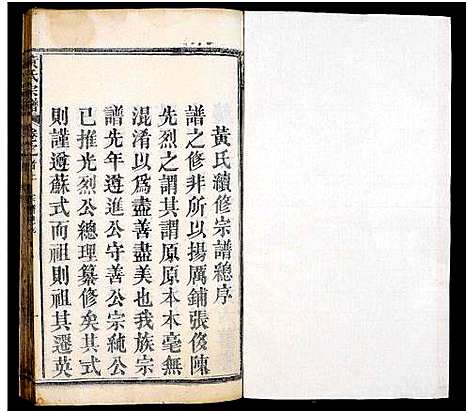 黃氏續修宗譜總序
譜之修非所以揚厲鋪張俊陳
先烈之謂其謂原原本本毫無
混淆以為盡善盡美也我族宗
譜先年遵進公守善公宗純公
已推光烈公總理纂修矣其式
則謹遵蘇式而祖則祖其遷英
黃氏宗譜